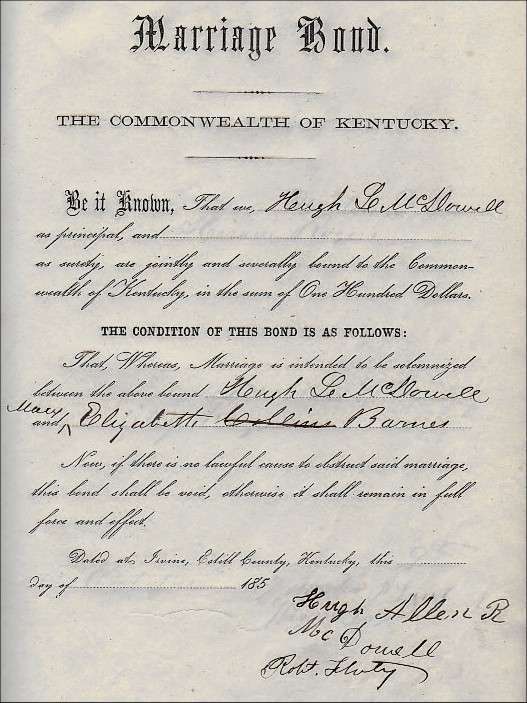 Marriage Bond.
THE COMMONWEALTH OF KENTUCKY.
Be it Known, That we, Hugh L McDowell
as principal, and
as surety, are jointly and severally bound to the Common-
wealth of Kentucky, in the sum of One Hundred Dollars.
THE CONDITION OF THIS BOND IS AS FOLLOWS:
That, Whereas, Marriage is intended to be solemnized
between the above bound Hugh L McDowell
Mary
and Elizabeth Collins Barnes
Now, if there is no lawful cause to obstruct said marriage,
this bond shall be void, otherwise it shall remain in full
force and effect.
Dated at Irvine, Estill County, Kentucky, this
day of 185
Hugh Allen R
McDowell
Robt.